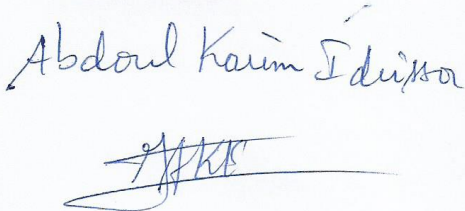 Abdoul Karim Idrissa